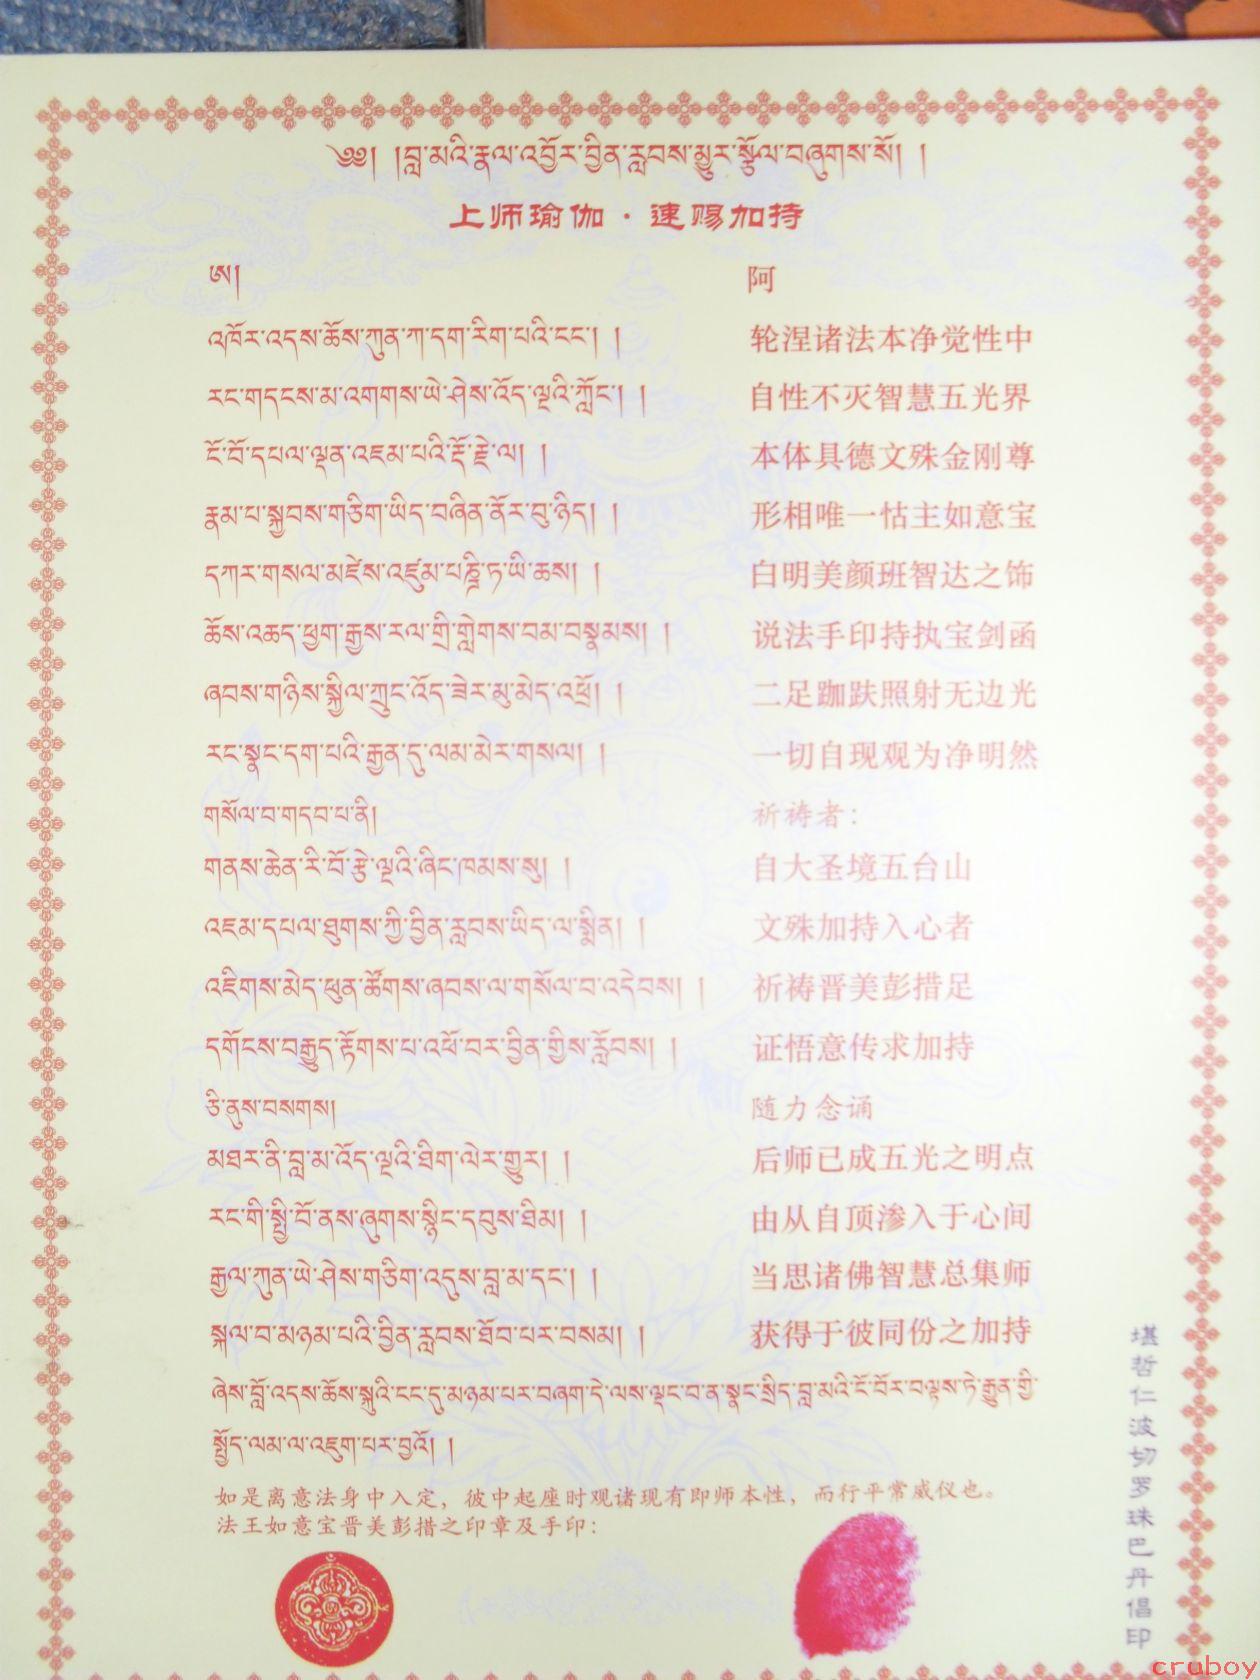 ༄༅། །བླ་མའི་རྣལ་འབྱོར་བྱིན་རླབས་མྱུར་སྩོལ་བཞུགས་སོ། །
上师瑜伽·速赐加持
ཨ།
阿
འཁོར་འདས་ཆོས་ཀུན་ཀ་དག་རིག་པའི་ངང་། །
轮涅诸法本净觉性中
རང་གདངས་མ་འགགས་ཡེ་ཤེས་འོད་ལྔའི་ཀློང་། །
自性不灭智慧五光界
ངོ་བོ་དཔལ་ལྡན་འཇམ་པའི་རྡོ་རྗེ་ལ། །
本体具德文殊金刚尊
རྣམ་པ་སྐྱབས་གཅིག་ཡིད་བཞིན་ནོར་བུ་ཉིད། །
形相唯一怙主如意宝
དཀར་གསལ་མཛེས་འཛུམ་པཎྜི་ཏ་ཡི་ཆས། །
白明美颜班智达之饰
ཆོས་འཆད་ཕྱག་རྒྱས་རལ་གྲི་གླེགས་བམ་བསྣམས། །
说法手印持执宝剑函
ཞབས་གཉིས་སྐྱིལ་ཀྲུང་འོད་ཟེར་མུ་མེད་འཕྲོ། །
二足跏趺照射无边光
རང་སྣང་དག་པའི་རྒྱན་དུ་ལམ་མེར་གསལ། །
一切自现观为净明然
གསོལ་བ་གདབ་པ་ནི།
祈祷者：
གནས་ཆེན་རི་བོ་རྩེ་ལྔའི་ཞིང་ཁམས་སུ། །
自大圣境五台山
འཇམ་དཔལ་ཐུགས་ཀྱི་བྱིན་རླབས་ཡིད་ལ་སྨིན། །
文殊加持入心者
འཇིགས་མེད་ཕུན་ཚོགས་ཞབས་ལ་གསོལ་བ་འདེབས། །
祈祷晋美彭措足
དགོངས་བརྒྱུད་རྟོགས་པ་འཕོ་བར་བྱིན་གྱིས་རློབས། །
证悟意传求加持
ཅི་ནུས་བསགས།
随力念诵
མཐར་ནི་བླ་མ་འོད་ལྔའི་ཐིག་ལེར་གྱུར། །
后师已成五光之明点
རང་གི་སྤྱི་བོ་ནས་ཞུགས་སྙིང་དབུས་ཐིམ། །
由从自顶渗入于心间
རྒྱལ་ཀུན་ཡེ་ཤེས་གཅིག་འདུས་བླ་མ་དང་། །
当思诸佛智慧总集师
སྐལ་བ་མཉམ་པའི་བྱིན་རླབས་ཐོབ་པར་བསམ། །
获得于彼同份之加持
ཞེས་བློ་འདས་ཆོས་སྐུའི་ངང་དུ་མཉམ་པར་བཞག་དེ་ལས་ལྡང་བ་ན་སྣང་སྲིད་བླ་མའི་ངོ་བོར་བལྟས་ཏེ་རྒྱུན་གྱི་
སྤྱོད་ལམ་ལ་འཇུག་པར་བྱའོ། །
如是离意法身中入定，彼中起座时观诸现有即师本性，而行平常威仪也。
法王如意宝晋美彭措之印章及手印：
堪哲仁波切罗珠巴丹倡印
cruboy